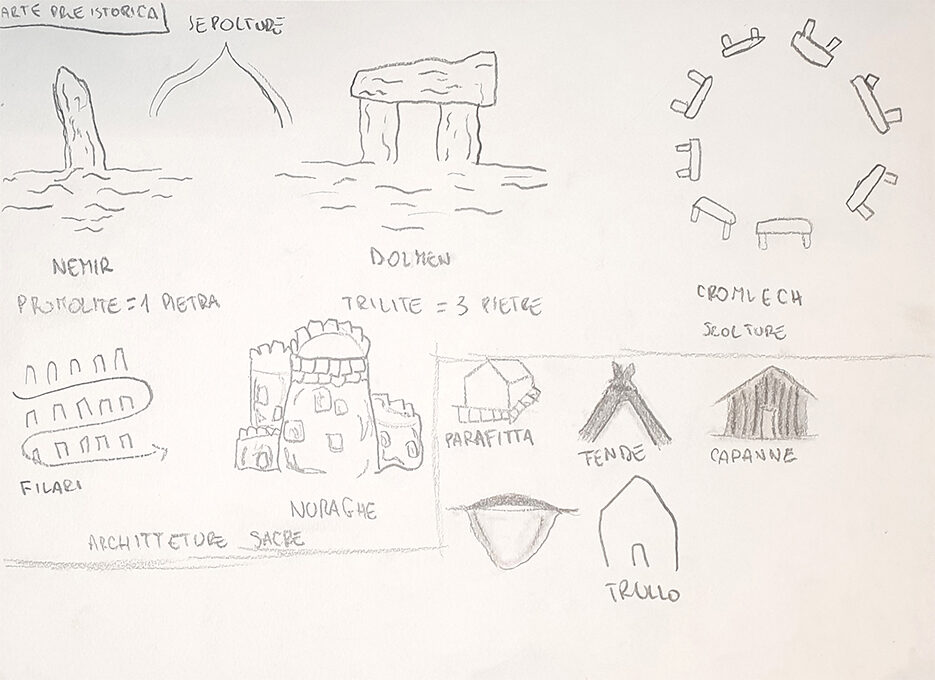 ARTE PREISTORICA
SEPOLTURE
NEMIR
DOLMEN
PROMOLITE = 1 PIETRA
TRILITE = 3 PIETRE
CROMLECH
SCOLTURE
FILARI
NORAGHE
ARCHITTETURE SACRE
PARAFITTA
TENDE
CAPANNE
TRULLO